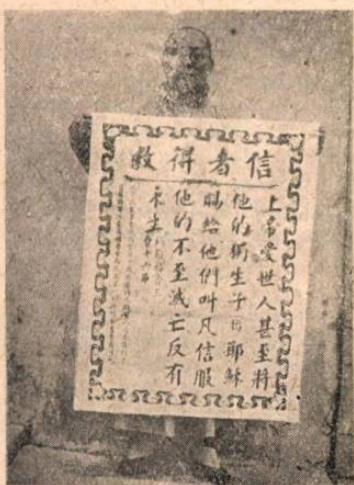 信者得救
上帝愛世人甚至將
他的獨生子耶穌
賜給他們叫凡信服
他的不至滅亡反有
永生